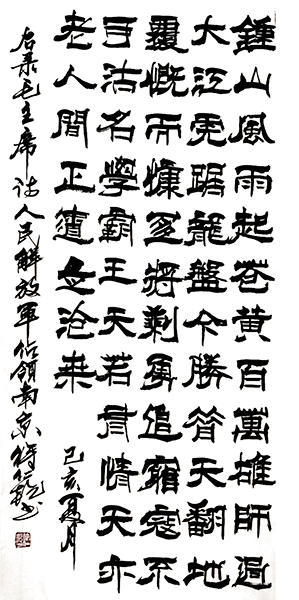 鍾山風雨起苍黄百萬雄師過
大江虎踞龍盤今勝昔天翻地
覆慨而慷宜將剩勇追窮寇不
可沽名學霸王天若有情天亦
老人間正道是沧桒
己亥夏月
右录毛主席诗人民解放軍佔領南京